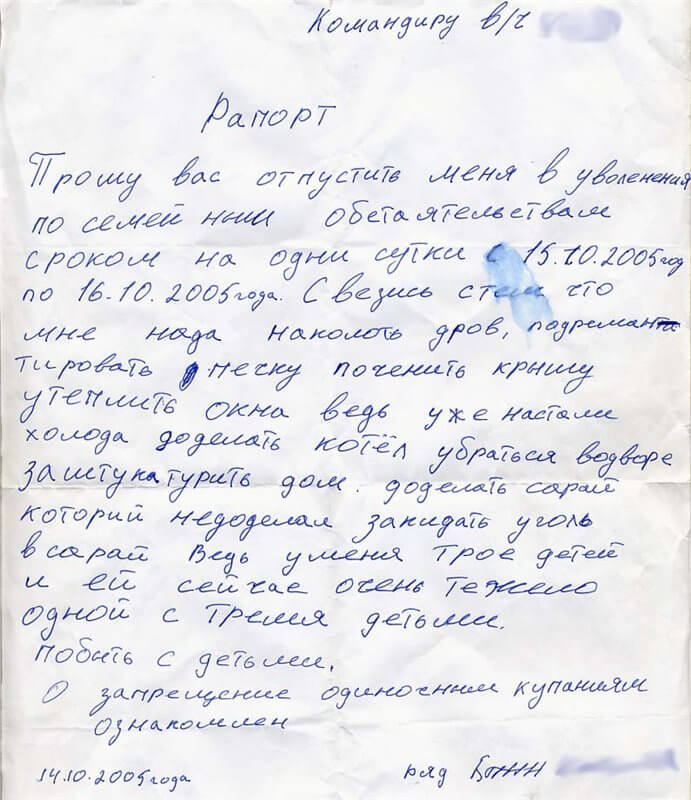 Командиру в/ч
Рапорт
Прошу вас отпустить меня в уволенения
по семейным обстаятельствам
сроком на одни сутки с 15.10.2005год
по 16.10.2005года. Свезись стем что
мне нада наколоть дров, подремант
тировать печку поченить крышу
утеплить окна ведь уже настали
холода доделать котёл убраться водворе
заштукатурить дом. доделать сарай
которий недоделал закидать уголь
всарай Ведь уменя трое детей
и ей сейчас очень тежело
одной с тремя детьми.
побыть с детьми.
О запрещение одиночным купаниям
ознакомлен
14.10.2005года ряд